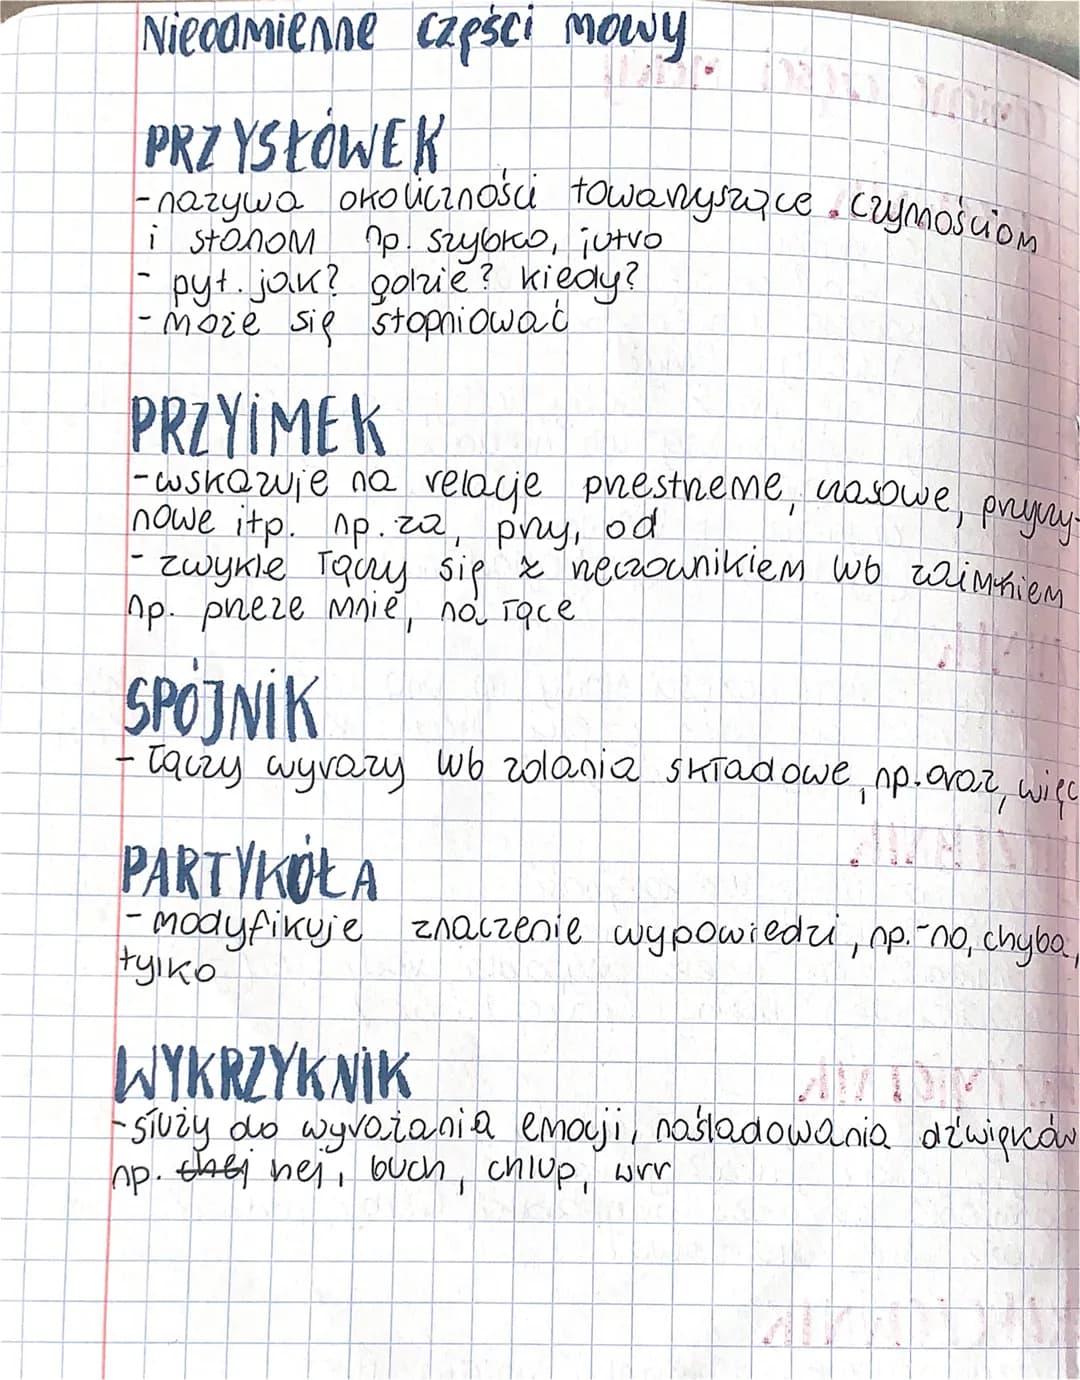 Nieodmienne części mowy
PRZYSŁÓWEK
-nazywa okoliczności towarzyszące czynnościom
i stanom np. szybko, jutro
- pyt. jak? gdzie? kiedy?
- może się stopniować
PRZYIMEK
-wskazuje na relacje przestrzenne, czasowe, przyczy-
nowe itp. np. za, przy, od
- zwykle łączy się z rzeczownikiem lub zaimkiem
np. przeze mnie, na łące
SPÓJNIK
- łączy wyrazy lub zdania składowe, np. oraz, więc
PARTYKÓŁA
- modyfikuje znaczenie wypowiedzi, np.-no, chyba,
tylko
WYKRZYKNIK
-służy do wyrażania emocji, naśladowania dźwięków
np. hej, buch, chlup, wrr